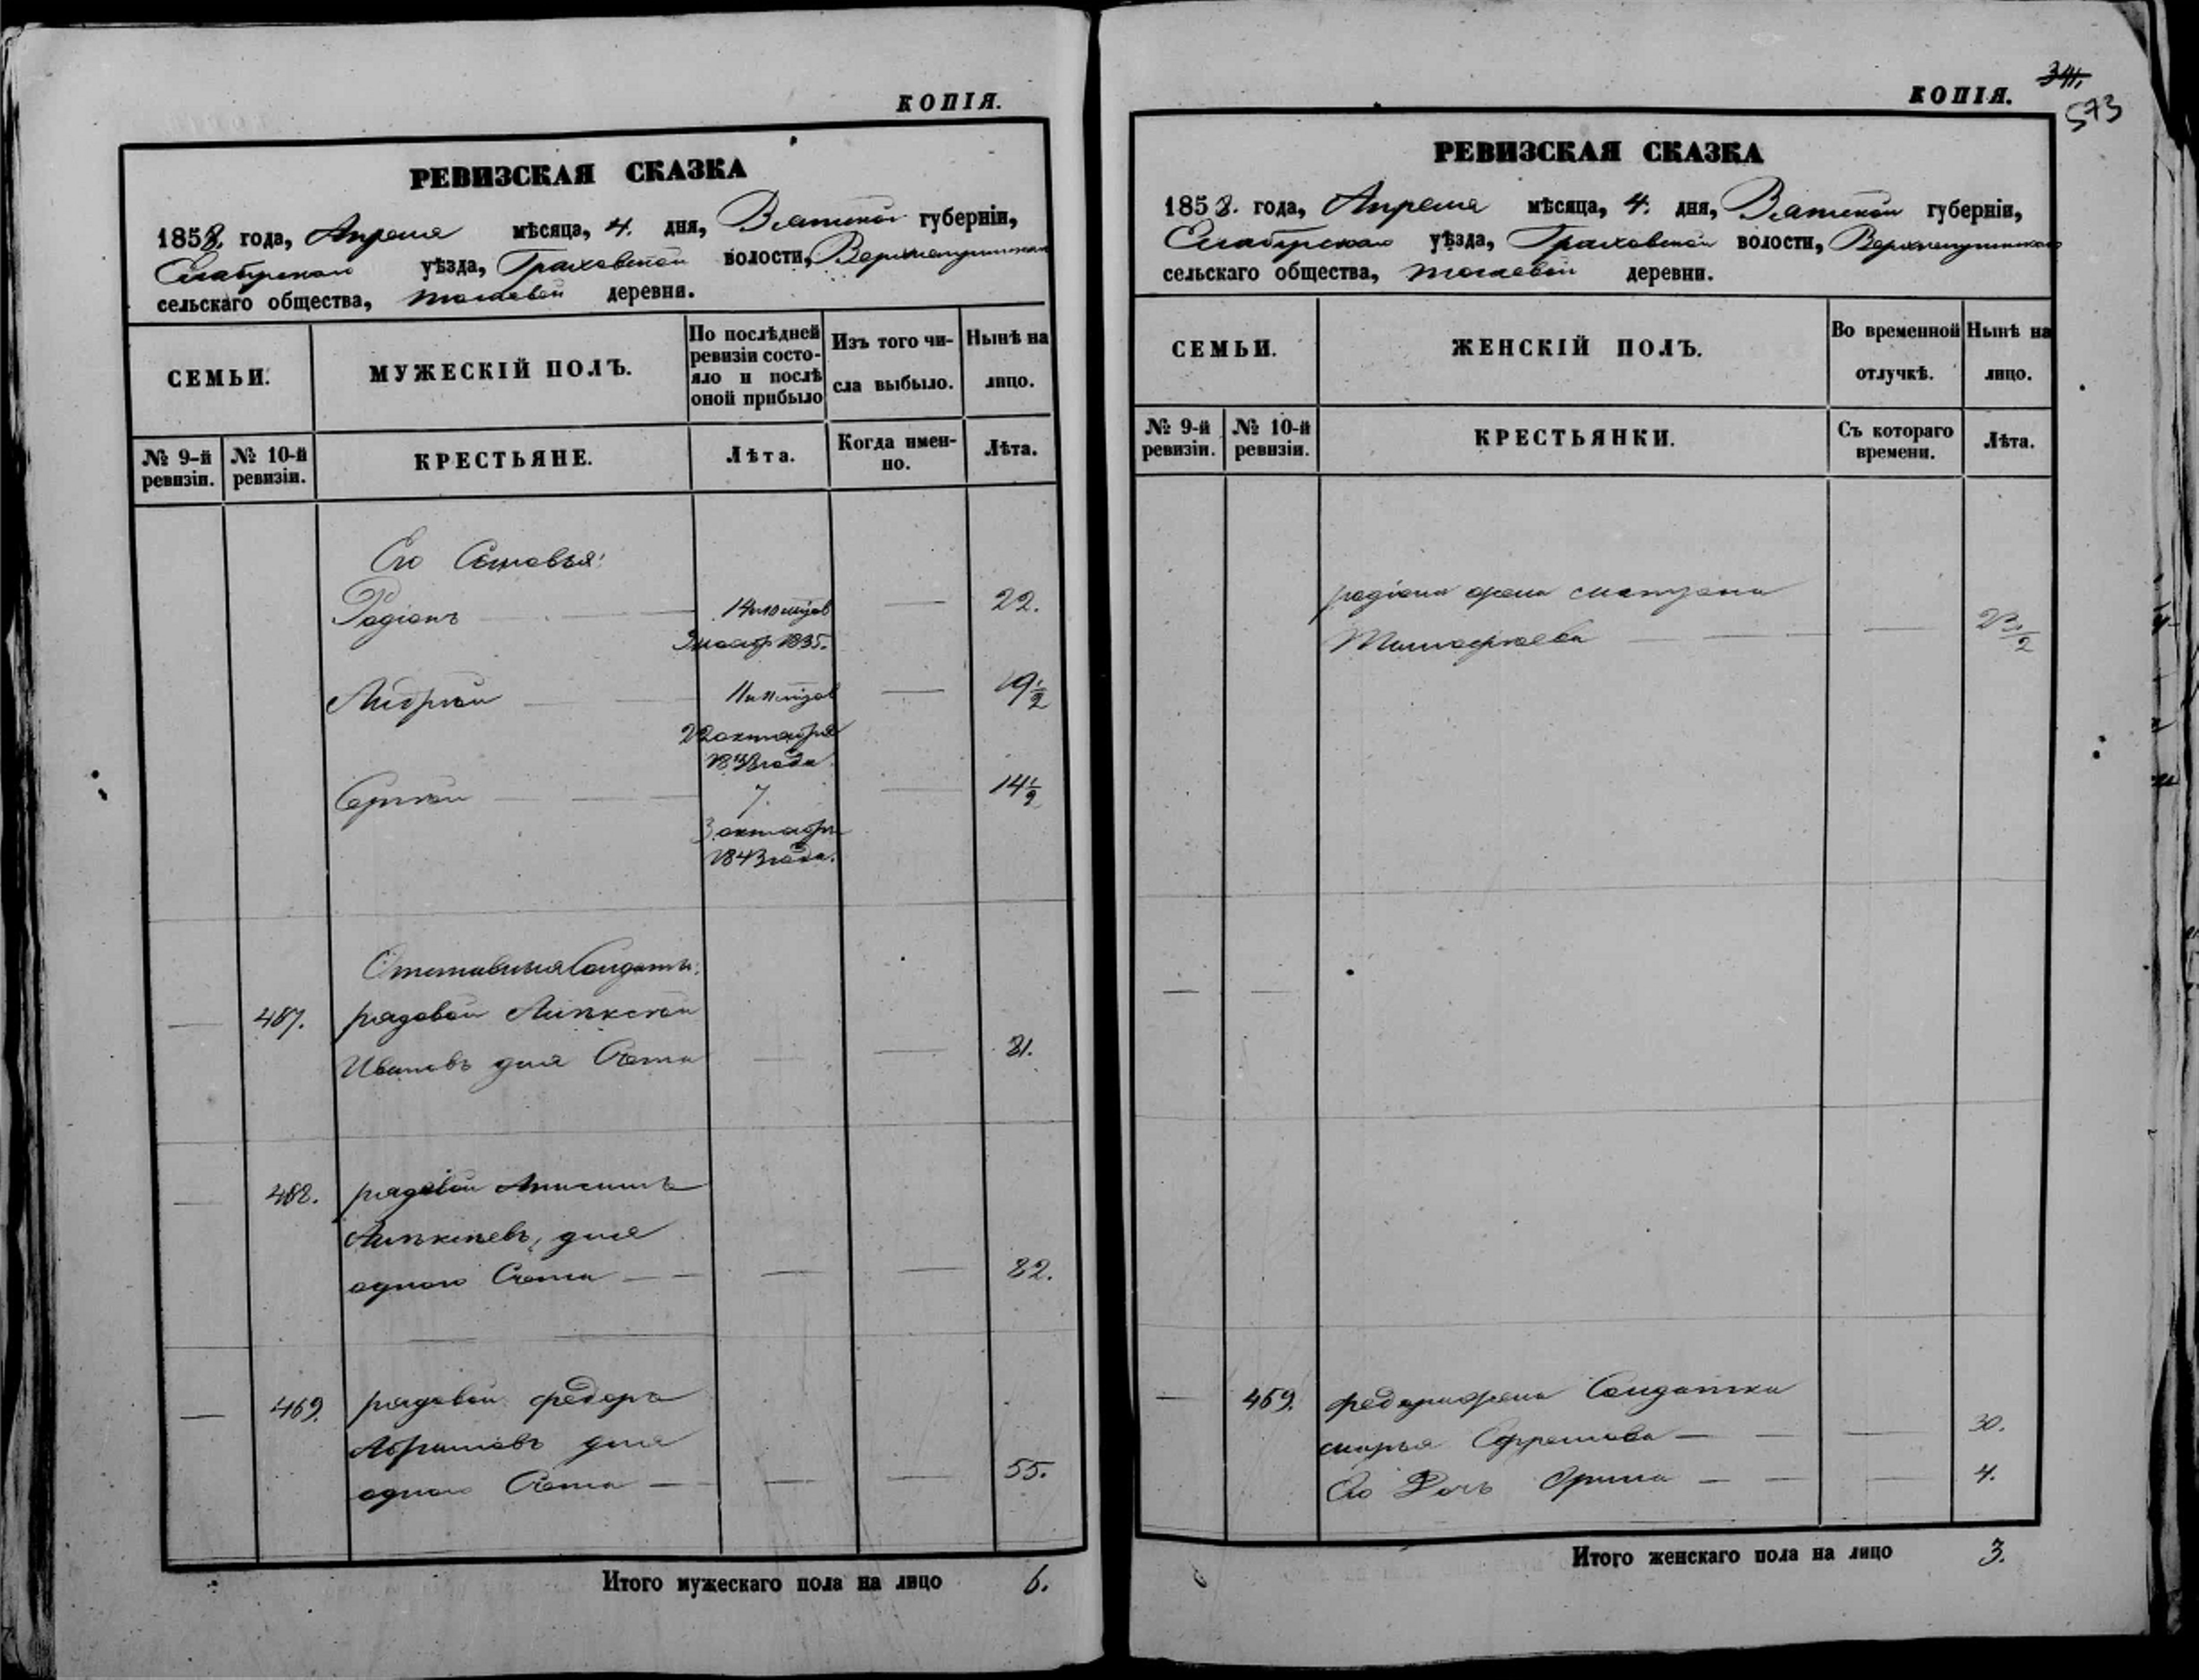 КОПІЯ.
РЕВИЗСКАЯ СКАЗКА
1858. года, Апреля мѣсяца, 4. дня, Вятской губерніи,
Елабужскаго уѣзда, Граховской волости,
сельскаго общества, деревни.
СЕМЬИ.
МУЖЕСКІЙ ПОЛЪ.
По послѣдней
ревизіи состо-
яло и послѣ
оной прибыло
Изъ того чи-
сла выбыло.
Нынѣ на
лицо.
№ 9-й
ревизіи.
№ 10-й
ревизіи.
КРЕСТЬЯНЕ.
Лѣта.
Когда имен-
но.
Лѣта.
Его Сыновья:
Родіонъ 22.
1835.
Андрей 19 1/2
22 октября
1838 года
Сергей 7. 14 1/2
3 октября
1843 года.
Отставныя Солдаты:
487. рядовой Алѣксѣй
Ивановъ для Счета 81.
488. рядовой Анисимъ
Алѣксѣевъ, для
одного Счета 82.
469. рядовой федоръ
Абрамовъ для
одного Счета 55.
Итого мужескаго пола на лицо 6.
КОПІЯ.
341.
573
РЕВИЗСКАЯ СКАЗКА
1858. года, Апреля мѣсяца, 4. дня, Вятской губерніи,
Елабужскаго уѣзда, Граховской волости,
сельскаго общества, деревни.
СЕМЬИ.
ЖЕНСКІЙ ПОЛЪ.
Во временной
отлучкѣ.
Нынѣ на
лицо.
№ 9-й
ревизіи.
№ 10-й
ревизіи.
КРЕСТЬЯНКИ.
Съ котораго
времени.
Лѣта.
родіона жена матрена
Тимофеева 23 1/2
469. федора жена Солдатка
марья Ефремова 30.
Его Дочь Орина 4.
Итого женскаго пола на лицо 3.